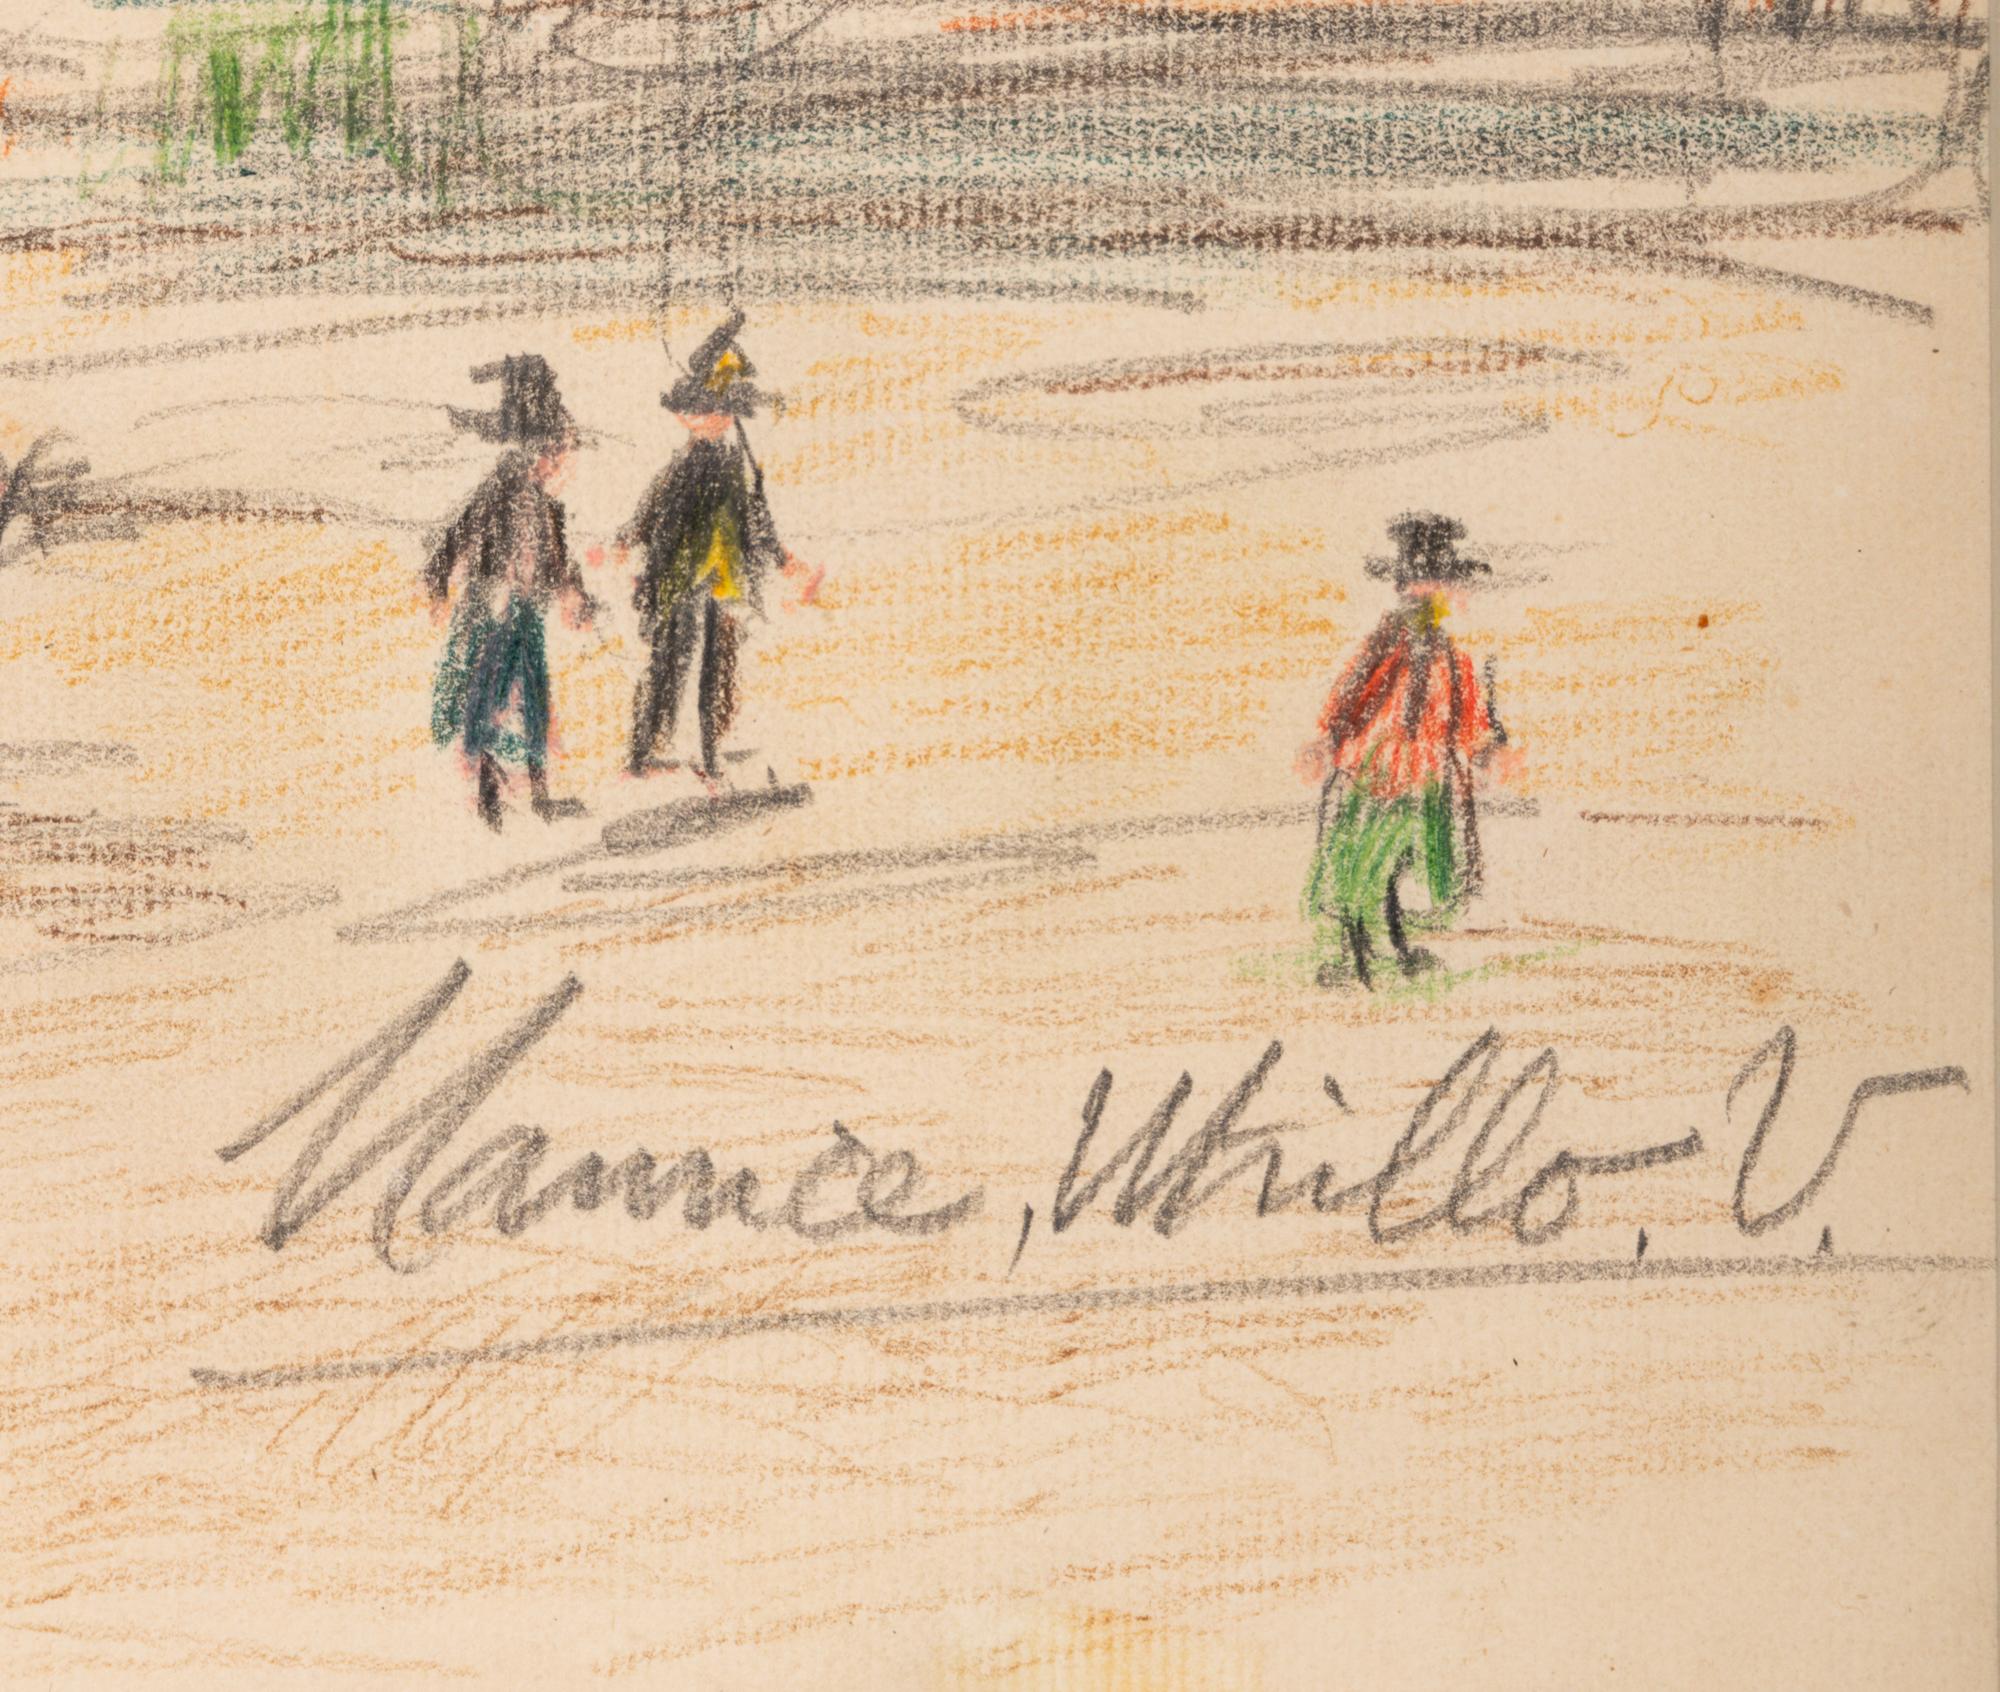 Maurice, Utrillo. V.